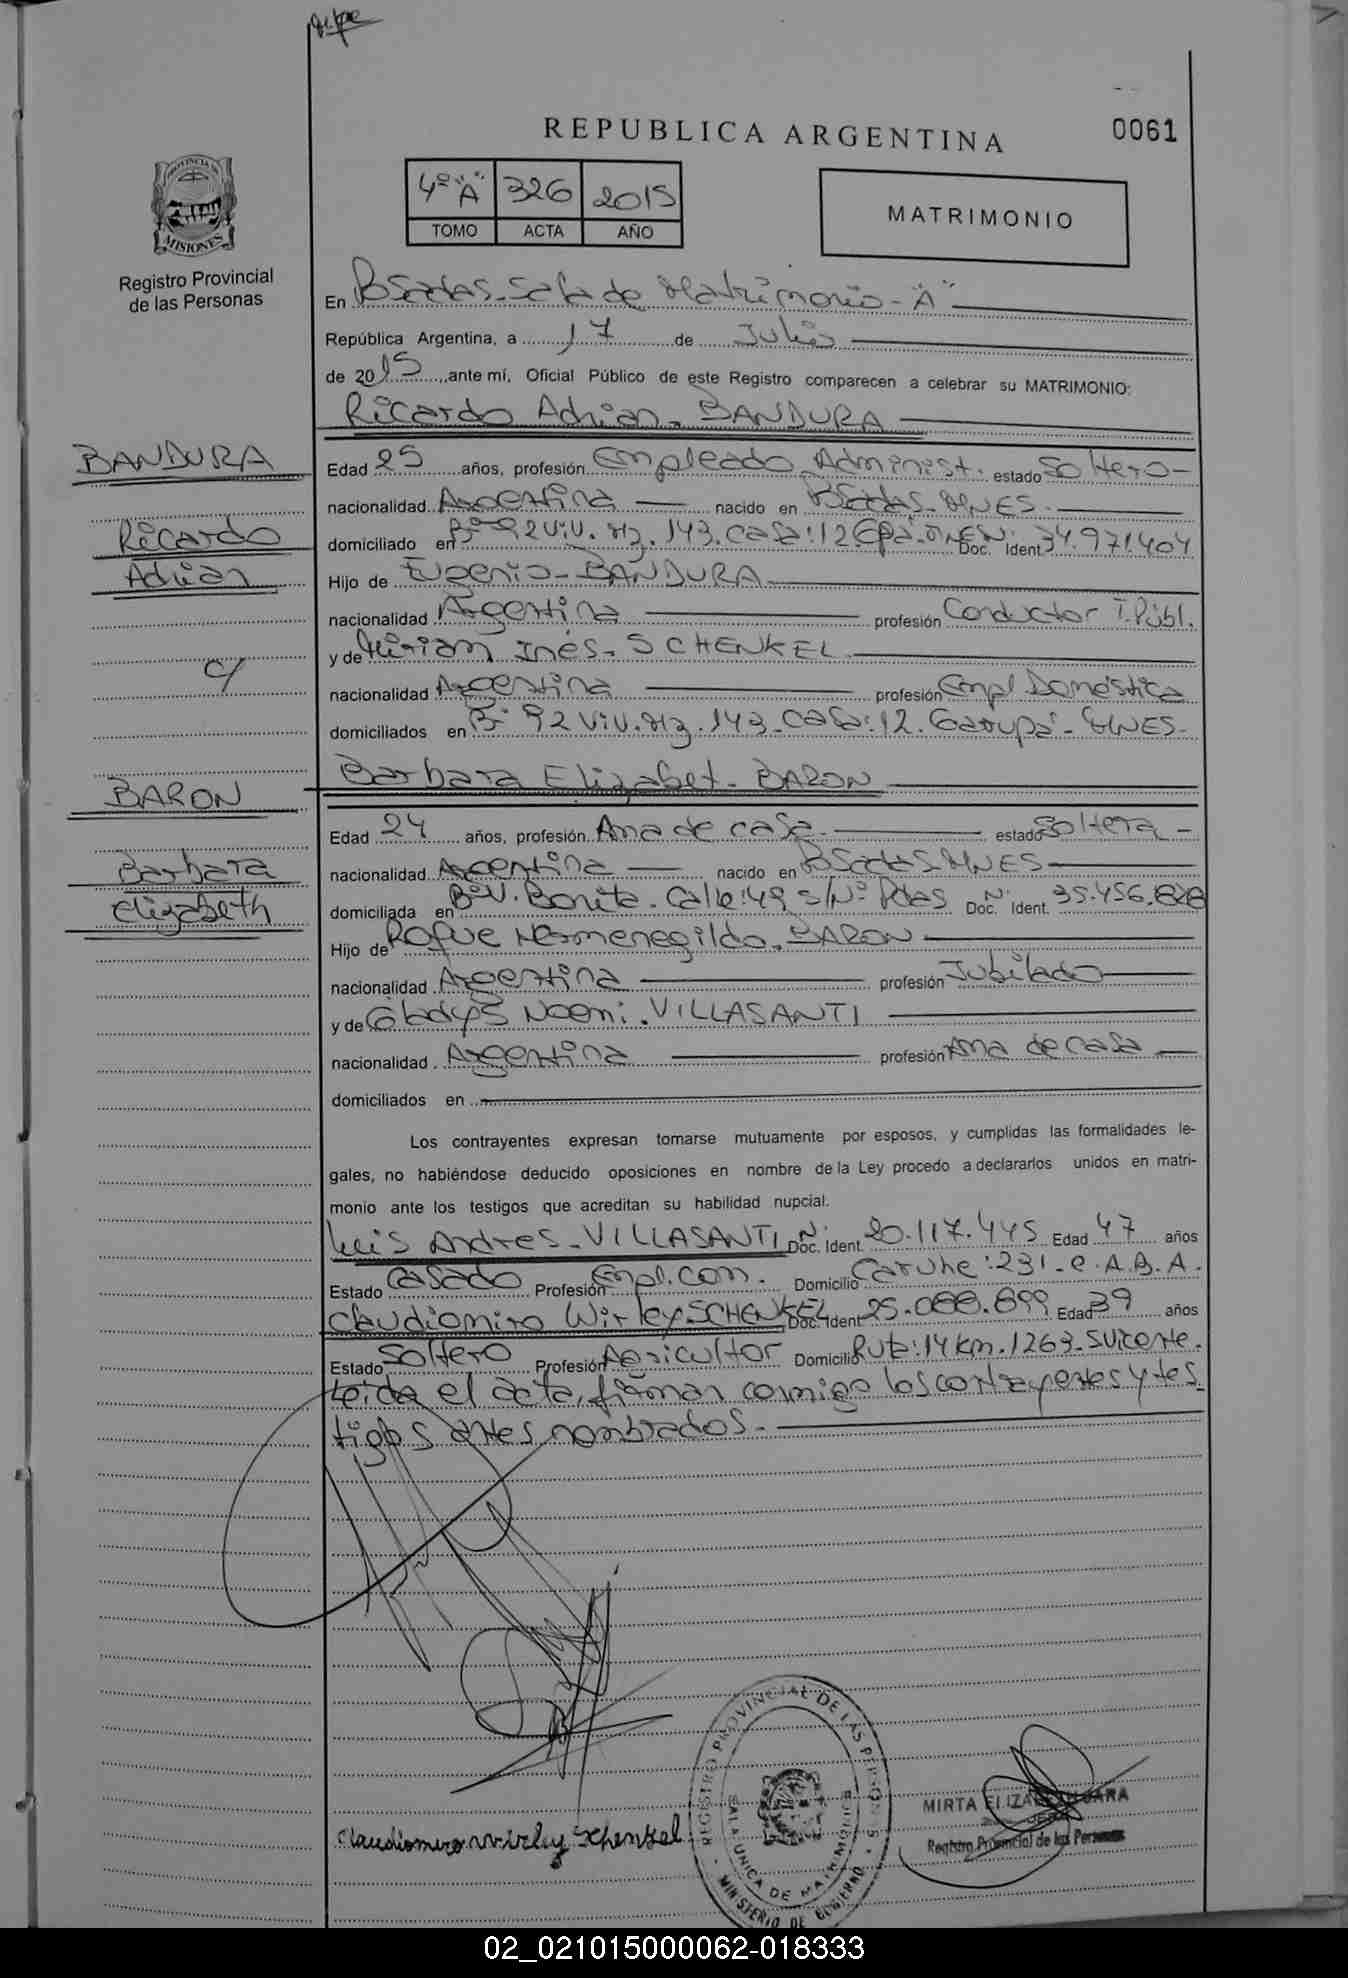 REPUBLICA ARGENTINA
0061
4º "A" 326 2015
TOMO ACTA AÑO
MATRIMONIO
PROVINCIA DE MISIONES
Registro Provincial
de las Personas
En Posadas-Sala de Matrimonio-"A"
República Argentina, a 17 de Julio
de 2015, ante mí, Oficial Público de este Registro comparecen a celebrar su MATRIMONIO:
Ricardo Adrian- BANDURA
BANDURA
Ricardo
Adrian
c/
Edad 25 años, profesión Empleado Administ. estado Soltero-
nacionalidad Argentina nacido en Posadas-MNES.
domiciliado en Bº 92 Viv. Mz. 143. Casa:12. Gpá. MNES. Doc. Nº Ident. 34.971.404
Hijo de Eugenio- BANDURA
nacionalidad Argentina profesión Conductor T. Públ.
y de Miriam Inés- SCHENKEL
nacionalidad Argentina profesión Empl Doméstica
domiciliados en Bº 92 Viv. Mz. 143- Casa:12. Garupá- MNES-
Barbara Elizabet- BARON
BARON
Barbara
Elizabeth
Edad 24 años, profesión Ama de casa- estado Soltera-
nacionalidad Argentina nacido en Posadas-MNES
domiciliada en Bº V. Bonita- Calle:49 s/Nº Pdas Doc. Nº Ident. 35.456.828
Hijo de Roque Hermenegildo- BARON
nacionalidad Argentina profesión Jubilado
y de Gladys Noemi- VILLASANTI
nacionalidad Argentina profesión Ama de casa
domiciliados en
Los contrayentes expresan tomarse mutuamente por esposos, y cumplidas las formalidades le-
gales, no habiéndose deducido oposiciones en nombre de la Ley procedo a declararlos unidos en matri-
monio ante los testigos que acreditan su habilidad nupcial.
Luis Andres- VILLASANTI Doc. Nº Ident. 20.117.445 Edad 47 años
Estado Casado Profesión Empl.com. Domicilio Caruhe:231- C.A.B.A.
Claudiomiro Wirley SCHENKEL Doc. Ident 25.088.899 Edad 39 años
Estado Soltero Profesión Agricultor Domicilio Ruta:14 Km. 1263- S Vicente.
Leida el acta, firman conmigo los contrayentes y tes-
tigos antes nombrados.-
Claudiomiro Wirley Schenkel
REGISTRO PROVINCIAL DE LAS PERSONAS
SALA UNICA DE MATRIMONIOS
MINISTERIO DE GOBIERNO
MIRTA ELIZABETH JARA
Registro Provincial de las Personas
02_021015000062-018333